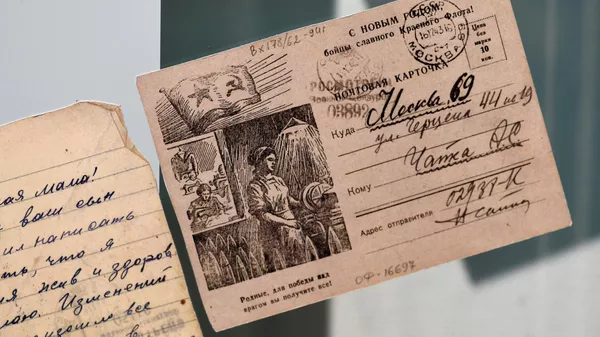 Вх178/62-94г
С НОВЫМ ГОДОМ,
бойцы славного Красного Флота!
МОСКВА
Цена
без марки
10 коп.
ПОЧТОВАЯ КАРТОЧКА
03892
Куда Москва 69
ул Герцена 44 кв 19
Кому Чатка
Адрес отправителя 02931-К
Родные, для победы над
врагом вы получите все!
ОФ-16697
ая мама!
ваш сын
ил написать
ть, что я
ия жив и здоров
лаю. Изменений
все
в